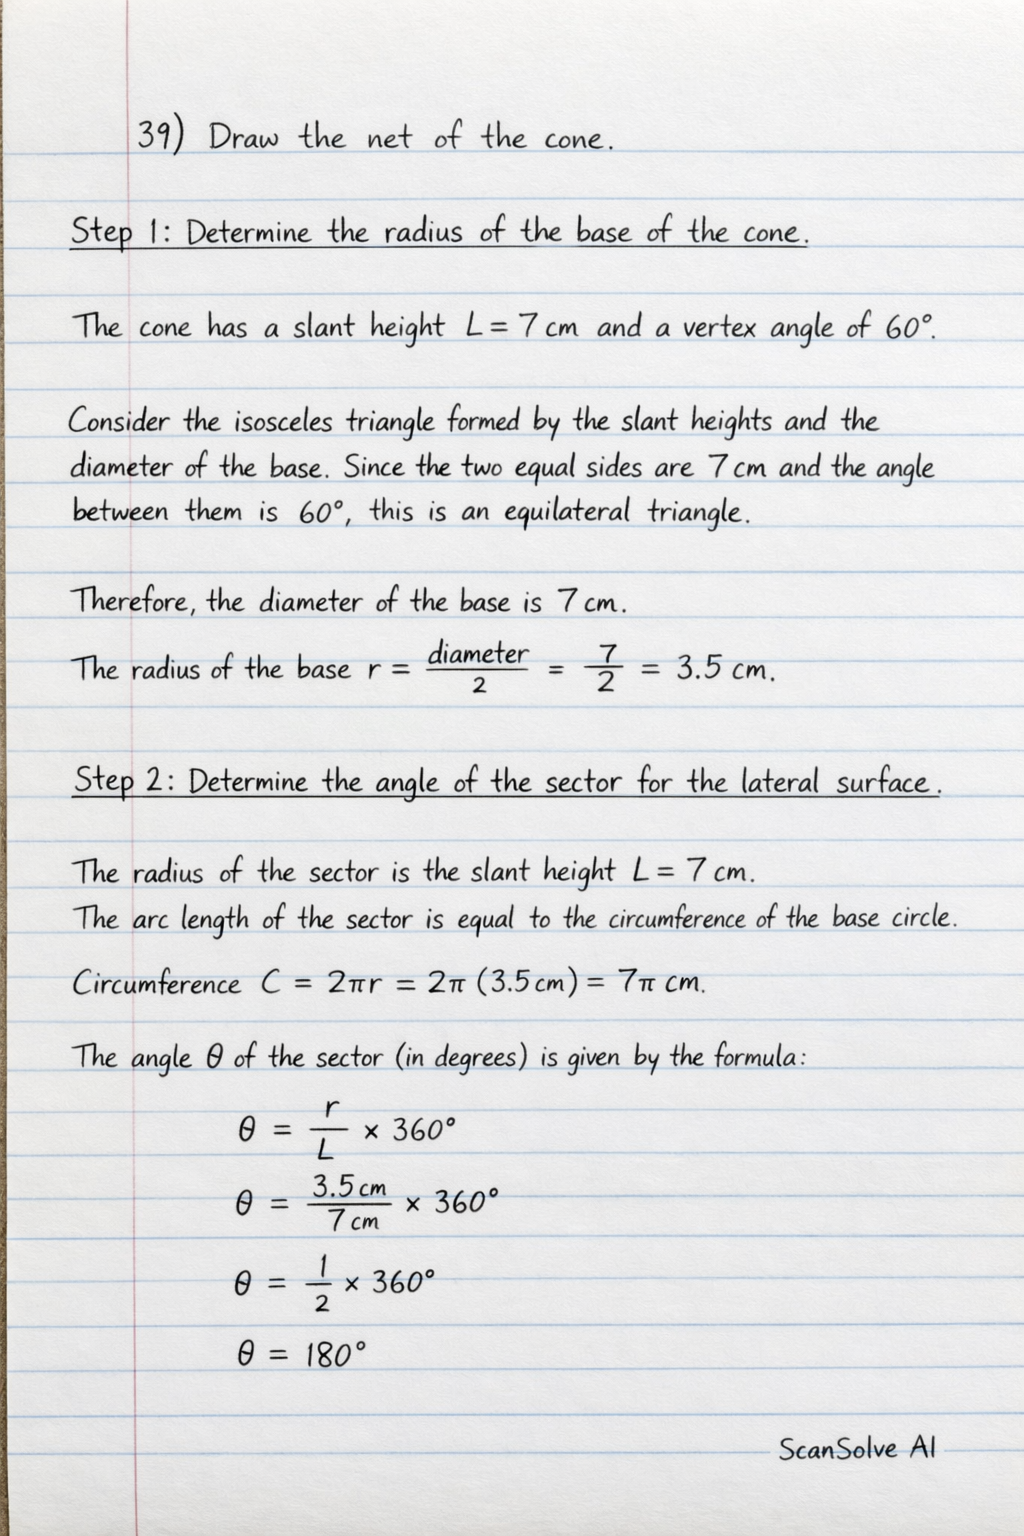 39) Draw the net of the cone.
Step 1: Determine the radius of the base of the cone.
The cone has a slant height L = 7 cm and a vertex angle of 60°.
Consider the isosceles triangle formed by the slant heights and the
diameter of the base. Since the two equal sides are 7 cm and the angle
between them is 60°, this is an equilateral triangle.
Therefore, the diameter of the base is 7 cm.
The radius of the base r = diameter/2 = 7/2 = 3.5 cm.
Step 2: Determine the angle of the sector for the lateral surface.
The radius of the sector is the slant height L = 7 cm.
The arc length of the sector is equal to the circumference of the base circle.
Circumference C = 2πr = 2π (3.5 cm) = 7π cm.
The angle θ of the sector (in degrees) is given by the formula:
θ = r/L × 360°
θ = 3.5 cm/7 cm × 360°
θ = 1/2 × 360°
θ = 180°
ScanSolve AI